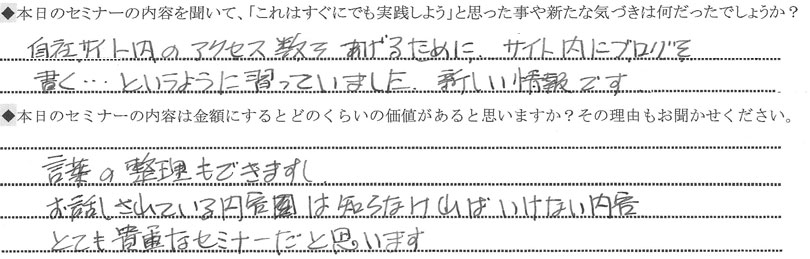 ◆本日のセミナーの内容を聞いて、「これはすぐにでも実践しよう」と思った事や新たな気づきは何だったでしょうか?
自社サイト内のアクセス数をあげるために、サイト内にブログを
書く…というように習っていました。新しい情報です
◆本日のセミナーの内容は金額にするとどのくらいの価値があると思いますか?その理由もお聞かせください。
言葉の整理もできますし、
お話しされている内容は知らなければいけない内容
とても貴重なセミナーだと思います